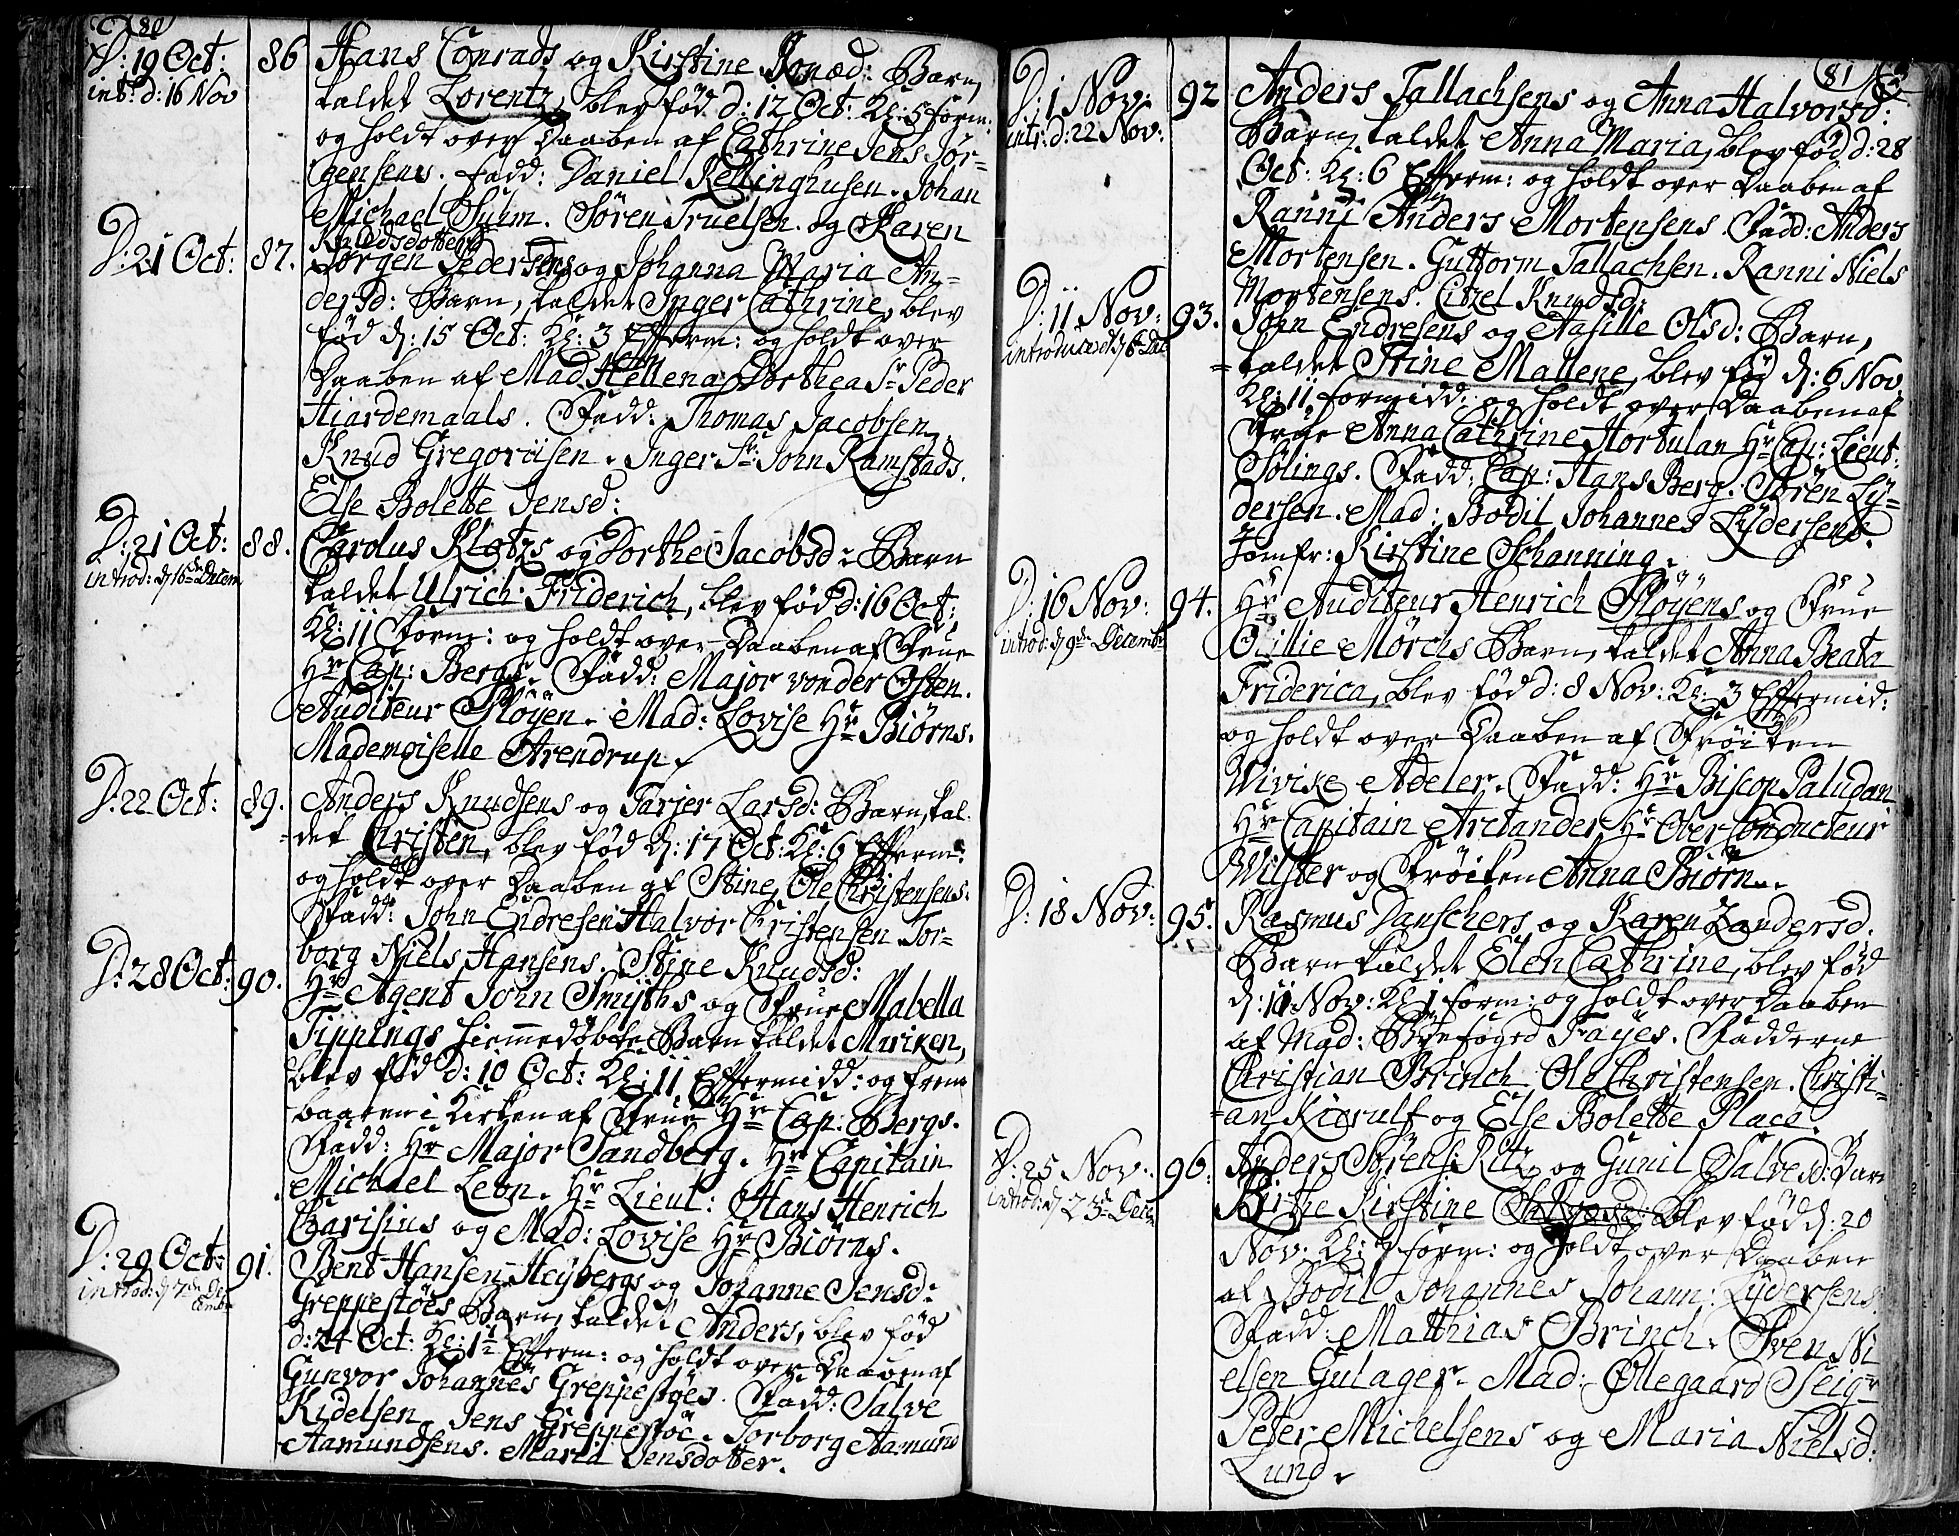 80
D: 19 Oct: 86 Hans Conrads og Kirstine Conæd: Barn,
int: d: 16 Nov kaldet Lorentz, blev fød d: 12 Oct: Kl: 5 form:
og holdt over Daaben af Cathrine Jens Jör-
gensens. Fadd: Daniel Rellinghusen. Johan
Michael Suhm. Sören Truelsen. og Karen
Knudsdotter
D: 21 Oct: 87. Jörgen Pedersens og Johanna Maria An-
dersd: Barn, kaldet Inger Cathrine, blev
fød d: 15 Oct: Kl: 3 Efferm: og holdt over
Daaben af Mad Hellena Dorthea Sr Peder
Hiardemaals. Fadd: Thomas Jacobsen,
Knud Gregoriisen. Inger Sr: John Ramstads.
Else Bolette Jensd:
D: 21 Oct: 88. Carolus Klotzs og Dorthe Jacobsd: Barn
introd: d 16de Decem kaldet Ulrich Friderich, blev fød d: 16 Oct:
Kl: 11 Form: og holdt over Daaben af Frue
Hr Cap: Bergs. Fadd: Major von der Osten.
Auditeur Pløyen. Mad: Lovise Hr Biörns.
Mademoiselle Arendrup.
D: 22 Oct: 89. Anders Knudsens og Tarjer Larsd: Barn, kal-
det Christen, blev fød d: 17 Oct: Kl: 6 Efferm:
og holdt over Daaben af Stine Ole Christensens.
Fadd: John Endresen Halvor Christensen Tor-
borg Niels Hansens. Stine Knudsd:
D: 28 Oct: 90. Hr Agent John Smyths og Frue Mabella
Tippings hiemmedøbte Barn kaldet Miriken,
blev fød d: 10 Oct: Kl: 11 Effermidd: og frem
baaren i Kirken af Frue Hr Cap: Bergs.
Fadd: Hr Major Sandberg. Hr Capitain
Michael Leon. Hr Lieut: Hans Henrich
Carisius og Mad: Lovise Hr Biörns.
D: 29 Oct: 91. Bent Hansen Heybergs og Johanne Jensd:
introd: d 7de De
cemb: Greppestöes Barn, kaldet Anders, blev fød
d: 24 Oct: Kl: 1½ Efferm: og holdt over Daaben af
Gunvor Johannes Greppestöes. Fadd: Salve
Kidelsen. Jens Greppestöe. Torborg Aamund
Aamundsens. Maria Jensdotter.
81
D: 1 Nov: 92 Anders Tallachsens og Anna Halvorsd:
intr: d: 22 Nov: Barn, kaldet Anna Maria, blev fød d: 28
Oct: Kl: 6 Efferm: og holdt over Daaben af
Ranni Anders Mortensens. Fadd: Anders
Mortensen. Guttorm Tallachsen. Ranni Niels
Mortensens. Citzel Knudsd:
D: 11 Nov: 93. John Endresens og Aasille Olsd: Barn,
introduced d 6 Dec kaldet Trine Mallene, blev fød d: 6 Nov
Kl: 11 formidd: og holdt over Daaben af
Frue Anna Cathrine Hortulan Hr Cap: Lieut:
Sölings. Fadd: Cap: Hans Berg. Sören Ly-
dersen. Mad: Bodil Johannes Lydersens.
Jomfr: Kirstine Schanning.
D: 16 Nov: 94. Hr Auditeur Henrich Pløyens og Frue
introd: d 9de Decembr Cicilie Mörchs Barn, kaldet Anna Beata
Friderica, blev fød d: 8 Nov: Kl: 3 Effermid:
og holdt over Daaben af Frøiken
Wivike Adeler. Fadd: Hr Biscop Paludan
Hr Capitain Arctander Hr Ober Conducteur
Wilster og Frøiken Anna Biörn.
D: 18 Nov: 95. Rasmus Danschers og Karen Zandersd.
Barn kaldet Elen Cathrine, blev fød
d: 11 Nov: Kl: 1 form: og holdt over Daaben
af Mad: Byefoged Fayes. Fadderne
Christian Brinch Ole Christensen. Christi-
an Kierulf og Else Bolette Place.
D: 25 Nov: 96. Anders Sörens: Ritz og Gunil Salved: Barn
introd: d 23de Decb Birthe Kirstine blev fød d: 20
Nov. Kl: 9 form: og holdt over Daaben
af Bodil Johannes Johann: Lydersens.
Fadd: Matthias Brinch. Sven Ni
elsen Gulager. Mad: Øllegaard Seigr
Peter Michelsens og Maria Nielsd:
Lund.